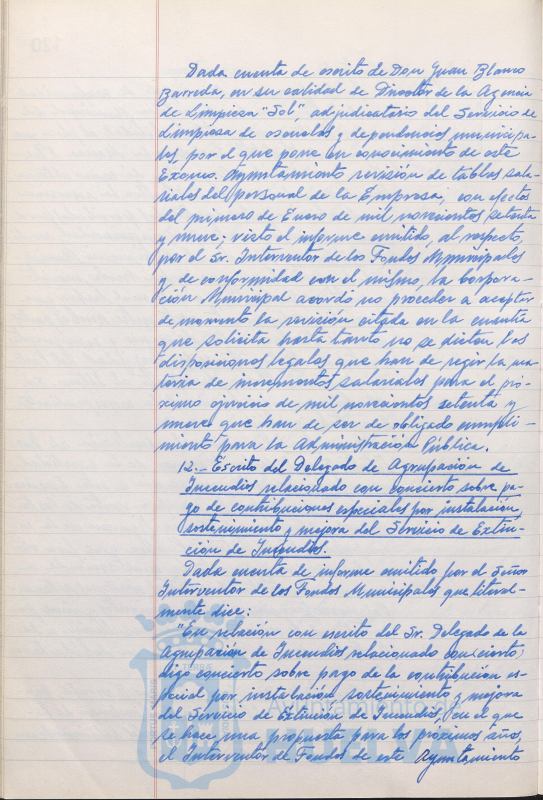 Dada cuenta de escrito de Don Juan Blanco
Barreda, en su calidad de Director de la Agencia
de Limpieza "Sol", adjudicatario del Servicio de
Limpieza de escuelas y dependencias municipa-
les, por el que pone en conocimiento de este
Excmo. Ayuntamiento revisión de tablas sala-
riales del personal de la Empresa, con efectos
del primero de Enero de mil novecientos setenta
y nueve; visto el informe emitido, al respecto,
por el Sr. Interventor de los Fondos Municipales
y de conformidad con el mismo, la Corpora-
ción Municipal acordó no proceder a aceptar
de momento la revisión citada en la cuantía
que solicita hasta tanto no se dicten las
disposiciones legales que han de regir la ma-
teria de incrementos salariales para el pró-
ximo ejercicio de mil novecientos setenta y
nueve que han de ser de obligado cumpli-
miento para la Administración Pública.
12.- Escrito del Delegado de Agrupación de
Incendios relacionado con concierto sobre pa-
go de contribuciones especiales por instalación,
sostenimiento y mejora del Servicio de Extin-
ción de Incendios.
Dada cuenta de informe emitido por el Señor
Interventor de los Fondos Municipales que literal-
mente dice:
"En relación con escrito del Sr. Delegado de la
Agrupación de Incendios relacionado con (cierto)
digo concierto sobre pago de la contribución es-
pecial por instalación sostenimiento y mejora
del Servicio de Extinción de Incendios, en el que
se hace una propuesta para los próximos años,
el Interventor de Fondos de este Ayuntamiento
Ayuntamiento de
HUELVA